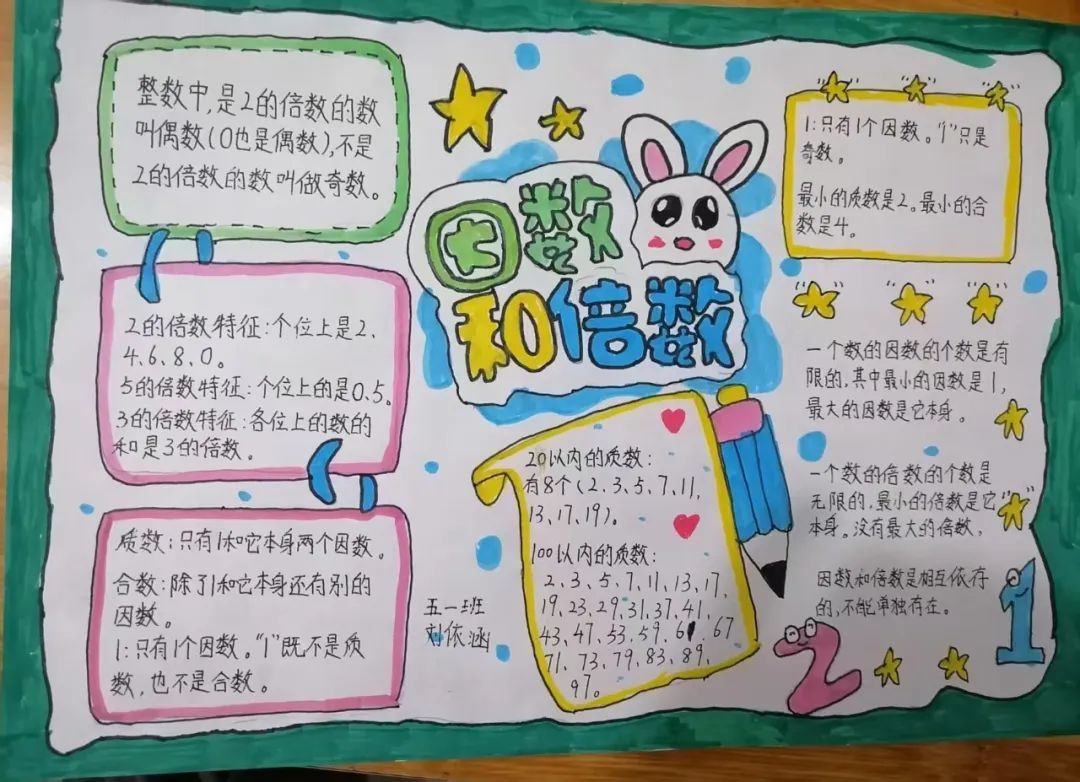 整数中,是2的倍数的数
叫偶数(0也是偶数),不是
2的倍数的数叫做奇数。
2的倍数特征:个位上是2、
4、6、8、0。
5的倍数特征:个位上的是0、5。
3的倍数特征:各位上的数的
和是3的倍数。
质数:只有1和它本身两个因数。
合数:除了1和它本身还有别的
因数。
1:只有1个因数。“1”既不是质
数,也不是合数。
因数
和倍数
20以内的质数:
有8个(2、3、5、7、11、
13、17、19)。
100以内的质数:
2、3、5、7、11、13、17、
19、23、29、31、37、41、
43、47、53、59、61、67
71、73、79、83、89、
97。
五一班
刘依涵
1:只有1个因数。“1”只是
奇数。
最小的质数是2。最小的合
数是4。
一个数的因数的个数是有
限的,其中最小的因数是1,
最大的因数是它本身。
一个数的倍数的个数是
无限的,最小的倍数是它
本身。没有最大的倍数,
因数和倍数是相互依存
的,不能单独存在。
2
1